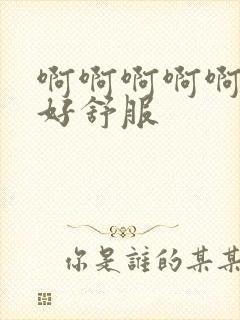 啊啊啊啊啊
好舒服
你是誰的某某